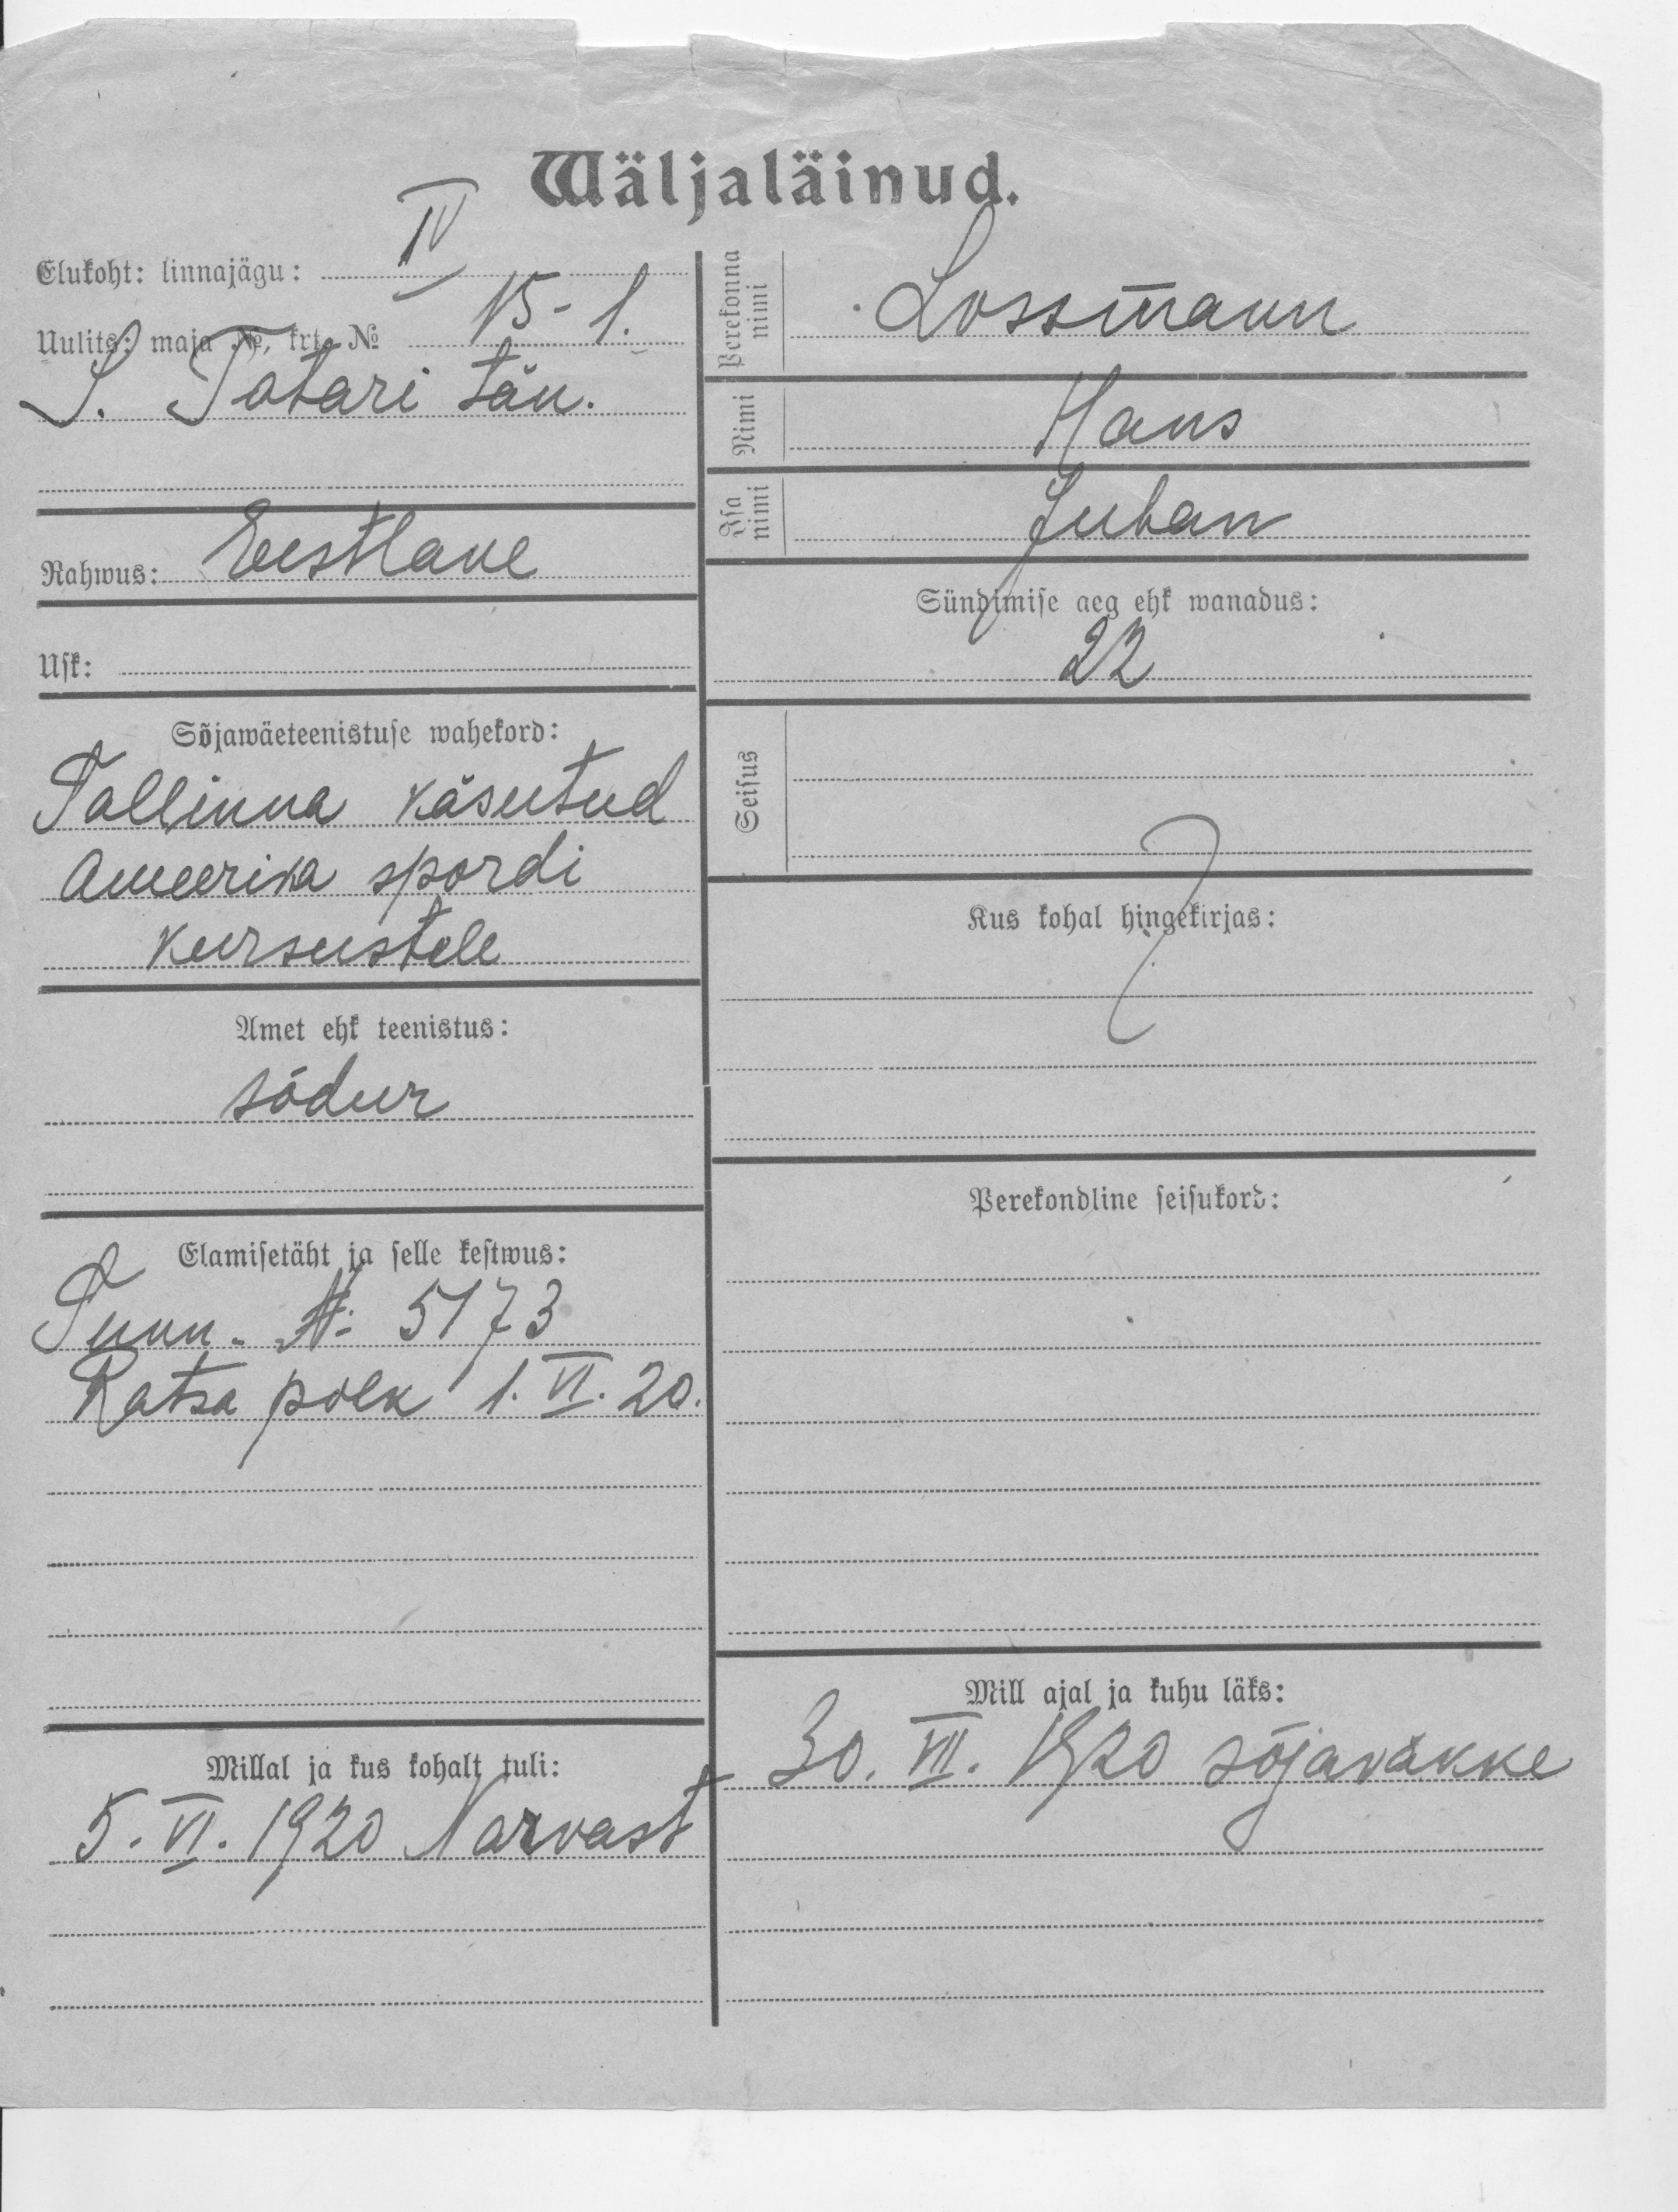 Wäljaläinud.
Elukoht: linnajägu: IV
Uulits: maja №, krt. № 15-1.
S. Tatari tän.
Rahwus: Eestlane
Usk:
Sõjawäeteenistuse wahekord:
Tallinna käsutud
Ameerika spordi
kursustele
Amet ehk teenistus:
sõdur
Elamisetäht ja selle kestwus:
Tunn. №: 5173
Ratsa polk 1. VI. 20.
Millal ja kus kohalt tuli:
5. VI. 1920 Narvast
Perekonna nimi
Lossmann
Nimi
Hans
Isa nimi
Juhan
Sündimise aeg ehk wanadus:
22
Seisus
Kus kohal hingekirjas:
?
Perekondline seisukord:
Mill ajal ja kuhu läks:
30. VII. 1920 sõjaväkke